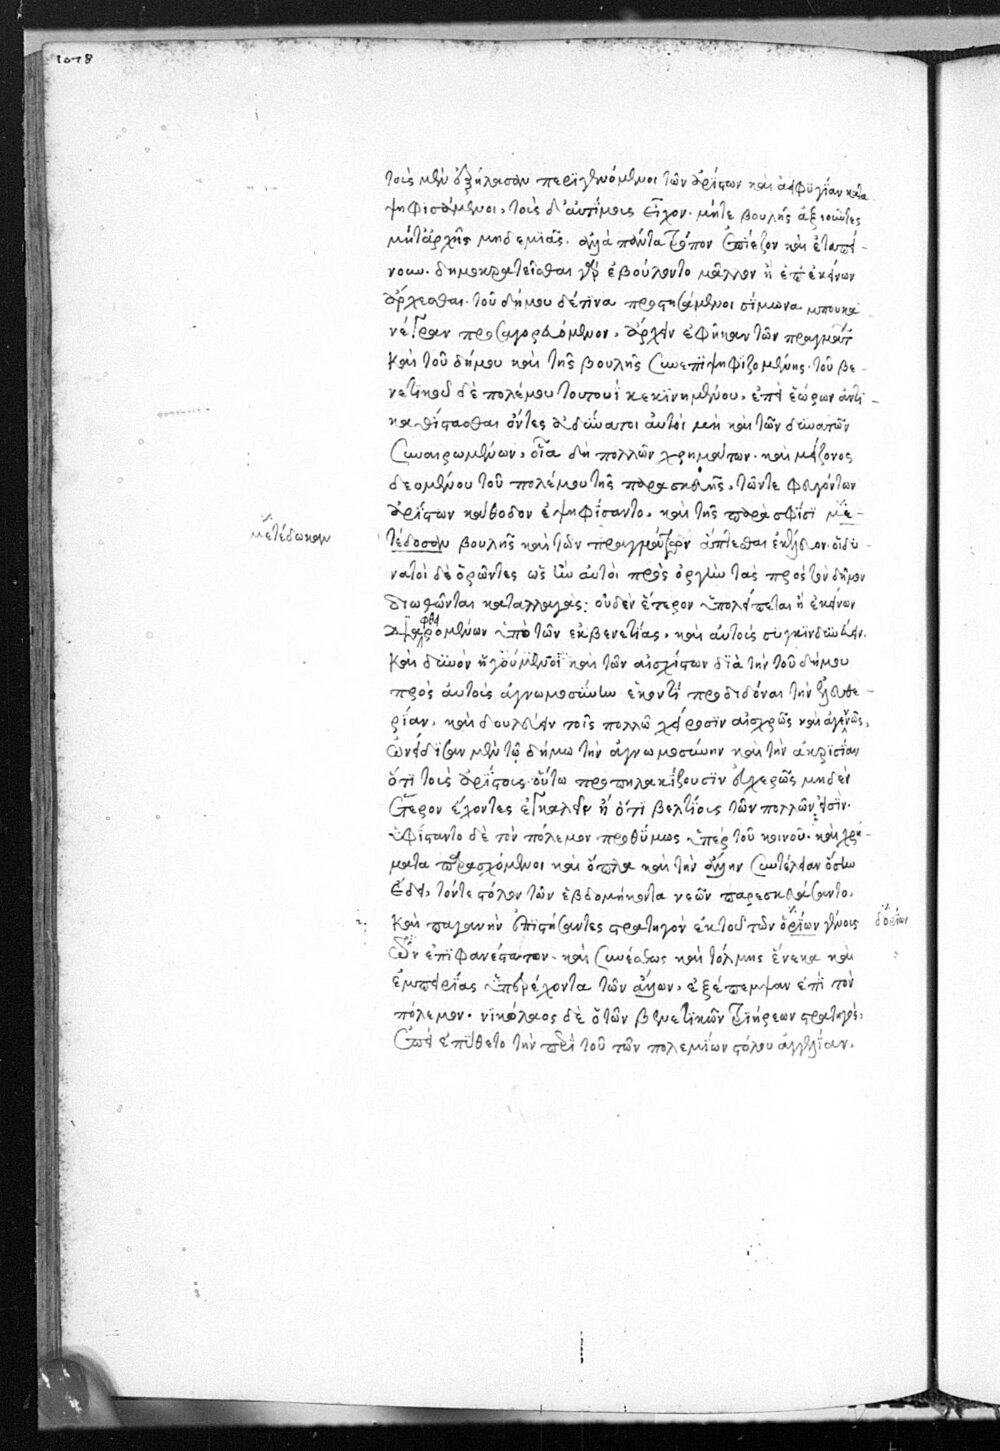 1078
τοὺς μὲν ἐξήλασαν περιγενόμενοι τῶν ἀρίστων καὶ ἀειφυγίαν κατα
ψηφισάμενοι, τοὺς δ' ἀτίμους εἶχον. μήτε βουλῆς ἀξιοῦντες
μήτ' ἀρχῆς μηδεμιᾶς. ἀλλὰ πάντα τρόπον ἐπίεζον καὶ ἐταπεί-
νουν. δημοκρατεῖσθαι γὰρ ἐβούλοντο μᾶλλον ἢ ἐπ' ἐκείνων
ἄρχεσθαι. τοῦ δήμου δέ τινα προστησάμενοι σίμωνα μπουκα
νέγραν προσαγορευόμενον, ἄρχειν ἐφῆκαν τῶν πραγμάτ
καὶ τοῦ δήμου καὶ τῆς βουλῆς συνεπιψηφιζομένης. τοῦ βε-
νετικοῦ δὲ πολέμου τουτουῒ κεκινημένου, ἐπεὶ ἑώρων ἀντι-
καθίστασθαι ὄντες ἀδύνατοι αὐτοὶ μὴ καὶ τῶν δυνατῶν
συναιρομένων, οἷα δὴ πολλῶν χρημάτων. καὶ μείζονος
δεομένου τοῦ πολέμου τῆς παρασκευῆς, τῶν τε φευγόντων
ἀρίστων κάθοδον ἐψηφίσαντο, καὶ τῆς παρὰ σφίσι με-
μετέδωκαν τέδοσαν βουλῆς καὶ τῶν πραγμάτων ἅπτεσθαι ἐκέλευον. οἱ δυ
νατοὶ δὲ ὁρῶντες ὡς ἢν αὐτοὶ πρὸς ὀργὴν τὰς πρὸς τὸν δῆμον
διωθῶνται καταλλαγὰς: οὐδὲν ἕτερον ὑπολείπεται ἢ ἐκείνων
φθειρομένων ὑπὸ τῶν ἐκ βενετίας, καὶ αὐτοὺς συγκινδυνεύειν.
καὶ δεινὸν ἡγούμενοι καὶ τῶν αἰσχίστων διὰ τὴν τοῦ δήμου
πρὸς αὐτοὺς ἀγνωμοσύνην ἑκοντὶ προδιδόναι τὴν ἐλευθε-
ρίαν, καὶ δουλεύειν τοῖς πολλῶ χείροσιν αἰσχρῶς καὶ ἀγενῶς,
ὠνείδιζον μὲν τῷ δήμω τὴν ἀγνωμοσύνην καὶ τὴν ἀκρισίαν
ὅτι τοὺς ἀρίστους οὕτω προπηλακίζουσιν εὐχερῶς μηδὲν
ἕτερον ἔχοντες ἐγκαλεῖν ἢ ὅτι βελτίους τῶν πολλῶν εἰσίν.
ὑφίσταντο δὲ τὸν πόλεμον προθύμως ὑπὲρ τοῦ κοινοῦ. καὶ χρή-
ματα παρασχόμενοι καὶ ὅπλα καὶ τὴν ἄλλην συντέλειαν ὅσην
ἔδει, τόν τε στόλον τῶν ἑβδομήκοντα νεῶν παρεσκευάσαντο,
καὶ παγανὴν ἐπιστήσαντες στρατηγὸν ἐκ τοῦ τῶν ὁρίων γένους δορίων
ὢν ἐπιφανέστατον. καὶ συνέσεως καὶ τόλμης ἕνεκα καὶ
ἐμπειρίας ὑπερέχοντα τῶν ἄλλων, ἐξέπεμψαν ἐπὶ τὸν
πόλεμον. νικόλαος δὲ ὁ τῶν βενετικῶν τριήρεων στρατηγὸς,
ἐπεὶ ἐπύθετο τὴν περὶ τοῦ τῶν πολεμίων στόλου ἀγγελίαν,